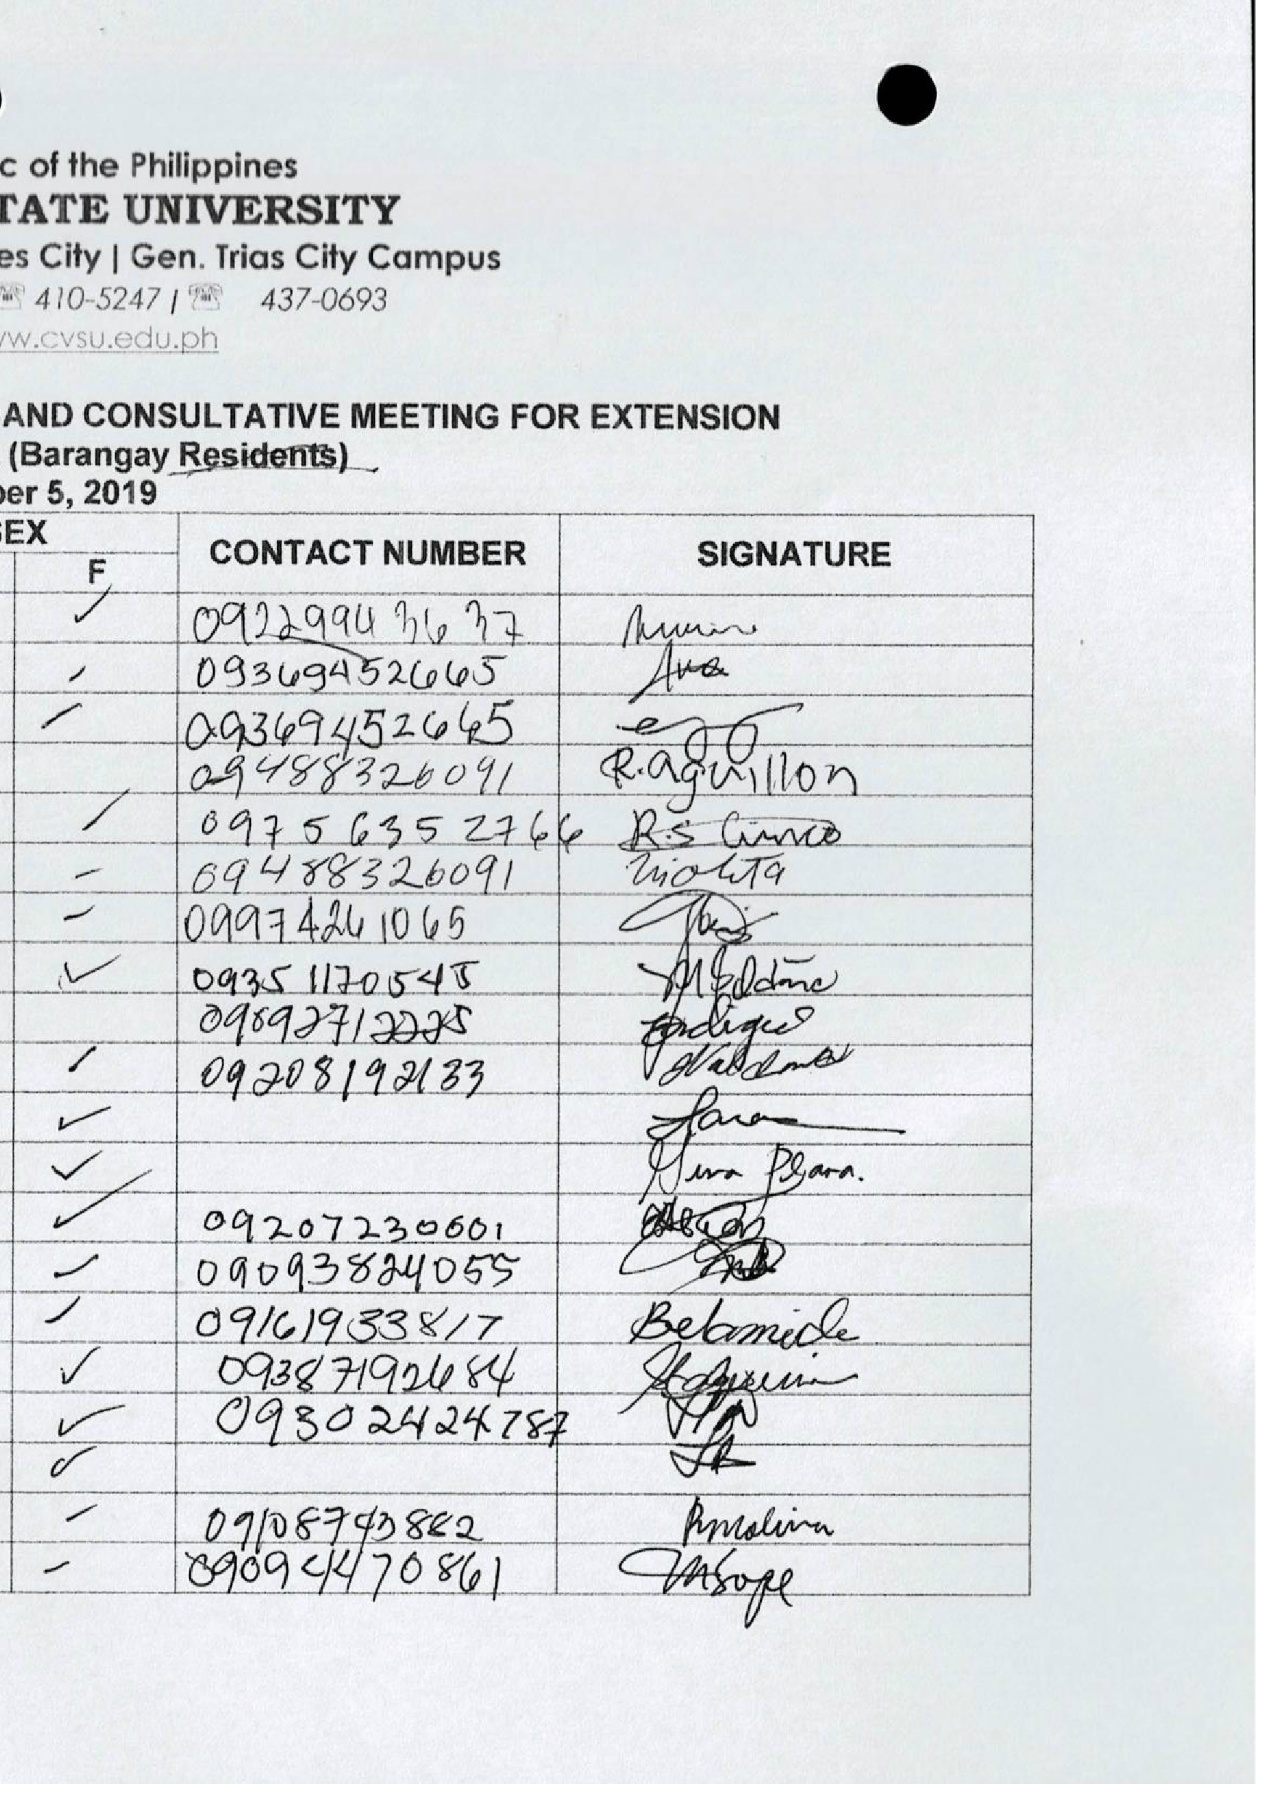 c of the Philippines
TATE UNIVERSITY
es City | Gen. Trias City Campus
☏ 410-5247 / ☏ 437-0693
ww.cvsu.edu.ph
AND CONSULTATIVE MEETING FOR EXTENSION
(Barangay Residents)
ber 5, 2019
SEX CONTACT NUMBER SIGNATURE
F
✓ 09229943637
09369452665
09369452665
09488326091 R. Aguillon
09756352766 R.S Cinco
09488326091 Violeta
09974261065
✓ 09351170545
09892712225
09208192133
✓
✓
✓ 09207230601
09093824055
09161933817 Belamide
✓ 09387192684
✓ 09302424787
✓
09108743862 Rmolina
09094470861